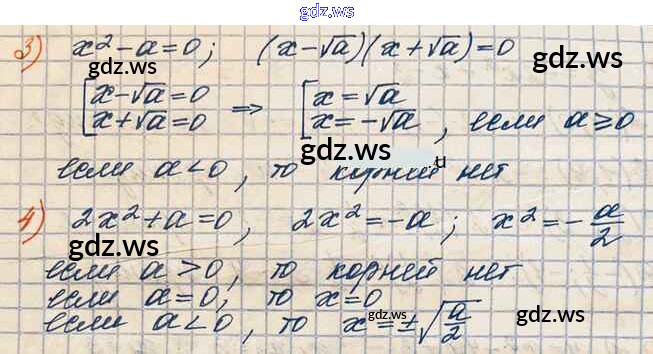 gdz.ws
3) x² - a = 0; (x - √a)(x + √a) = 0
gdz.ws gdz.ws
[x - √a = 0 ⇒ [x = √a
x + √a = 0 x = -√a, если a ≥ 0
gdz.ws u
если a < 0, то корней нет
4) 2x² + a = 0, 2x² = -a; x² = -a/2
gdz.ws
если a > 0, то корней нет
если a = 0; то x = 0
если a < 0, то x = ±√(a/2)
gdz.ws gdz.ws